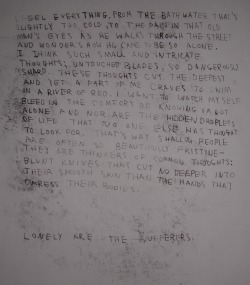 I FEEL EVERYTHING, FROM THE BATH WATER THAT'S
SLIGHTLY TOO COLD, TO THE PAIN IN THAT OLD
MAN'S EYES AS HE WALKS THROUGH THE STREET
AND WONDERS HOW HE CAME TO BE SO ALONE.
I THINK SUCH SMALL AND INTRICATE
THOUGHTS; UNTOUCHED BLADES, SO DANGEROUSLY
SHARP. THESE THOUGHTS CUT THE DEEPEST
AND YET A PART OF ME CRAVES TO SWIM
IN A RIVER OF RED. I WANT TO
BLEED IN THE COMFORT OF KNOWING I'M NOT
ALONE AND NOR ARE THE HIDDEN DROPLETS
OF LIFE THAT NO ONE ELSE WAS TAUGHT
TO LOOK FOR. THAT'S WHY SHALLOW PEOPLE
ARE OFTEN SO BEAUTIFULLY PRISTINE-
THEY ARE THINKERS OF COMMON THOUGHTS:
BLUNT KNIVES THAT CUT NO DEEPER INTO
THEIR SMOOTH SKIN THAN THE HANDS THAT
CARESS THEIR BODIES.
LONELY ARE THE SUFFERERS.